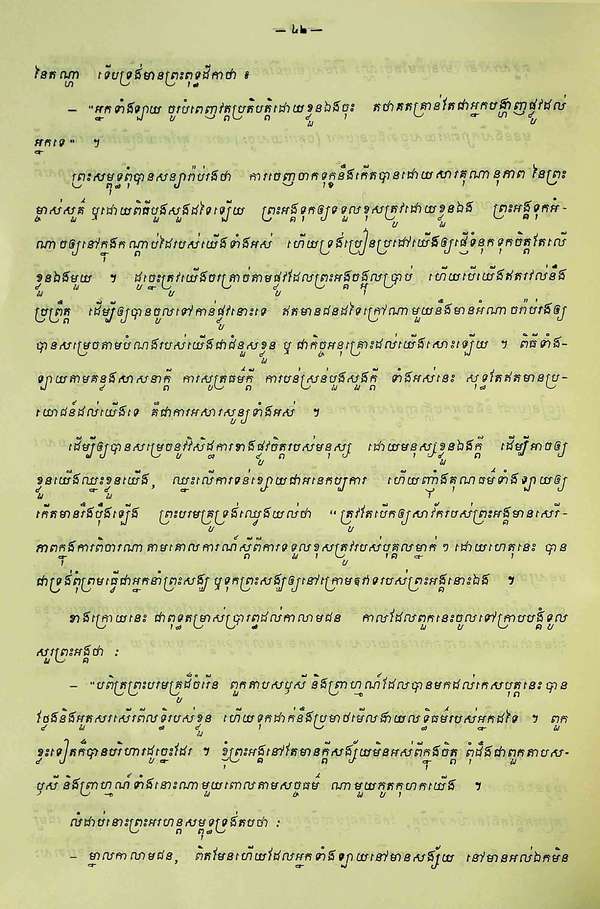 — ៤២ —
នៃតណ្ហា ទើបទ្រង់មានព្រះពុទ្ធដីកាថា ៖
— "អ្នកទាំងឡាយ ចូរបំពេញវត្តប្រតិបត្តិដោយខ្លួនឯងចុះ តថាគតគ្រាន់តែជាអ្នកបង្ហាញផ្លូវដល់
អ្នកទេ" ។
ព្រះសម្ពុទ្ធពុំបានសន្យារ៉ាប់រងថា ការចេញចាកទុក្ខនឹងកើតបានដោយសារគុណានុភាព នៃព្រះ
ម្ចាស់សួគ៌ ឬដោយពិធីបួងសួងដទៃឡើយ ព្រះអង្គទុកឲ្យទទួលខុសត្រូវដោយខ្លួនឯង ព្រះអង្គទុកអំ-
ណាចឲ្យនៅក្នុងកណ្តាប់ដៃរបស់យើងទាំងអស់ ហើយទ្រង់ប្រៀនប្រដៅយើងឲ្យផ្ញើទំនុកទុកចិត្តតែលើ
ខ្លួនឯងមួយ ។ ដូច្នេះត្រូវយើងចរត្រាច់តាមផ្លូវដែលព្រះអង្គចង្អុលប្រាប់ ហើយបើយើងឥតរវល់នឹង
ប្រព្រឹត្ត ដើម្បីឲ្យបានចូលទៅកាន់ផ្លូវនោះទេ ឥតមានជនដទៃក្រៅណាមួយនឹងមានអំណាចរ៉ាប់រងឲ្យ
បានសម្រេចតាមបំណងរបស់យើងជាជំនួសខ្លួន ឬ ជាកិច្ចអនុគ្រោះដល់យើងសោះឡើយ ។ ពិធីទាំង-
ឡាយតាមគន្លងសាសនាក្តី ការសូត្រធម៌ក្តី ការបន់ស្រន់បួងសួងក្តី ទាំងអស់នេះ សុទ្ធតែឥតមានប្រ-
យោជន៍ដល់យើងទេ គឺជាការអសារសូន្យទាំងអស់ ។
ដើម្បីឲ្យបានសម្រេចនូវវិសិដ្ឋការខាងផ្លូវចិត្តរបស់មនុស្ស ដោយមនុស្សខ្លួនឯងក្តី ដើម្បីអាចឲ្យ
ខ្លួនយើងឈ្នះខ្លួនយើង, ឈ្នះលើការទន់ខ្សោយជាអនេកប្បការ ហើយញ៉ាំងគុណធម៌ទាំងឡាយឲ្យ
កើតមានរឹងប៉ឹងឡើង ព្រះបរមគ្រូទ្រង់ឈ្វេងយល់ថា "ត្រូវតែបើកឲ្យសាវ័ករបស់ព្រះអង្គមានសេរី-
ភាពក្នុងការពិចារណាតាមគោលការណ៍ស្តីពីការទទួលខុសត្រូវរបស់បុគ្គលម្នាក់ៗ ដោយហេតុនេះ បាន
ជាទ្រង់ពុំព្រមធ្វើជាអ្នកនាំព្រះសង្ឃ ឬទុកព្រះសង្ឃឲ្យនៅក្រោមឱវាទរបស់ព្រះអង្គនោះឯង ។
ខាងក្រោយនេះ ជាពុទ្ធតម្រាស់ប្រារព្ធដល់កាលាមជន កាលដែលពួកនេះចូលទៅក្រាបបង្គំទូល
សួរព្រះអង្គថា :
— "បពិត្រព្រះបរមគ្រូដ៏ចំរើន ពួកតាបសឫសី និងព្រាហ្មណ៍ដែលបានមកដល់កេសបុត្តនេះ បាន
ថ្លែងនិងអួតសរសើរពីលទ្ធិរបស់ខ្លួន ហើយទុកដាក់នឹងប្រមាថមើលងាយលទ្ធិធម៌របស់អ្នកដទៃ ។ ពួក
ខ្លះទៀតក៏បានបរិហារដូច្នេះដែរ ។ ខ្ញុំព្រះអង្គនៅតែមានក្តីសង្ស័យមិនអស់ពីក្នុងចិត្ត ពុំដឹងជាពួកតាបស-
ឫសី និងព្រាហ្មណ៍ ទាំងនោះណាមួយពោលតាមសច្ចធម៌ ណាមួយភូតកុហកយើង ។
លំដាប់នោះព្រះអរហន្តសម្ពុទ្ធទ្រង់តបថា :
— ម្នាលកាលាមជន, ពិតមែនហើយដែលអ្នកទាំងឡាយនៅមានសង្ស័យ នៅមានអល់ឯកមិន